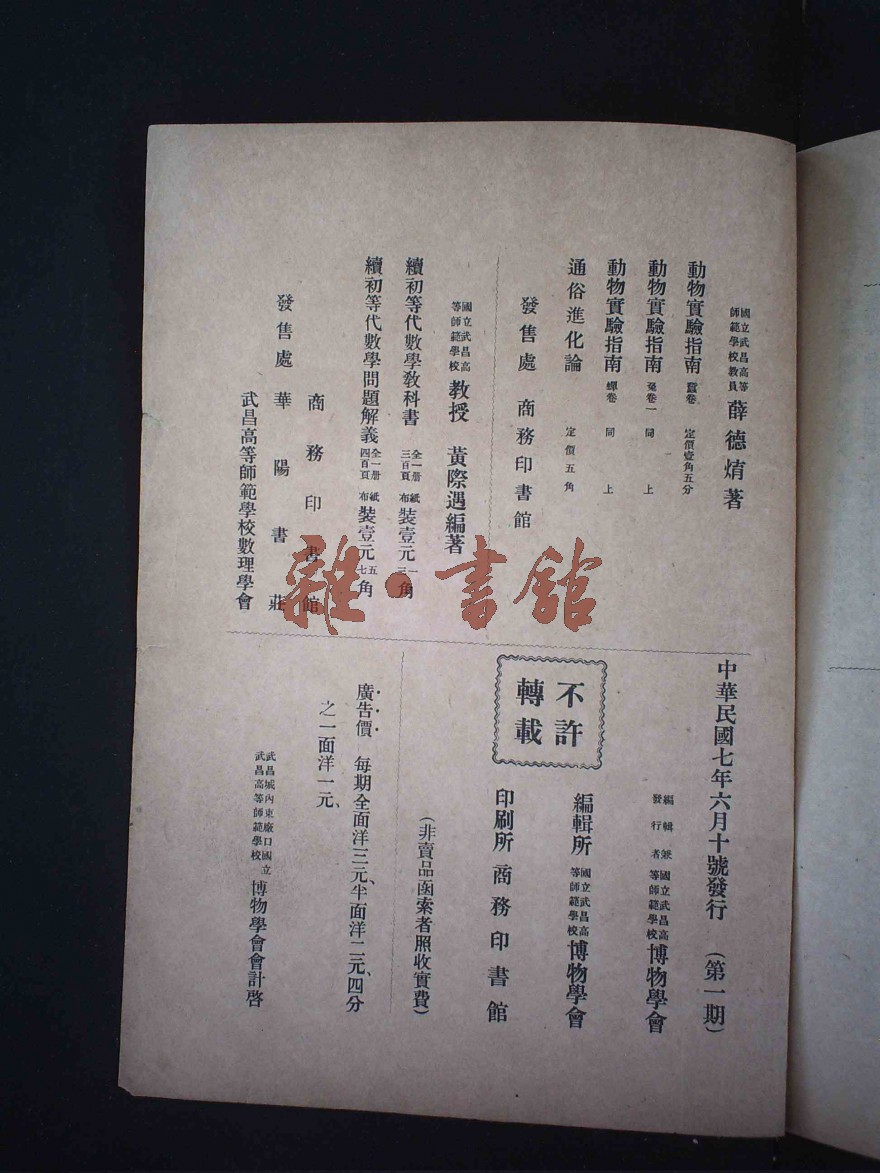 國立武昌高等師範學校教員 薛德焴著
動物實驗指南 蠶卷 定價壹角五分
動物實驗指南 兔卷一 同上
動物實驗指南 蟬卷 同上
通俗進化論 定價五角
發售處 商務印書館
國立武昌高等師範學校教授 黃際遇編著
續初等代數學教科書 全一册三百頁 紙布裝壹元一三角
續初等代數學問題解義 全一册四百頁 紙布裝壹元五七角
商務印書館
發售處 華陽書莊
武昌高等師範學校數理學會
中華民國七年六月十號發行 (第一期)
編輯兼發行者 國立武昌高等師範學校博物學會
編輯所 國立武昌高等師範學校博物學會
不許轉載
印刷所 商務印書館
(非賣品函索者照收實費)
廣告價 每期全面洋三元、半面洋二元、四分
之一面洋一元、
武昌城內東廠口國立武昌高等師範學校 博物學會會計啓
雜·書館